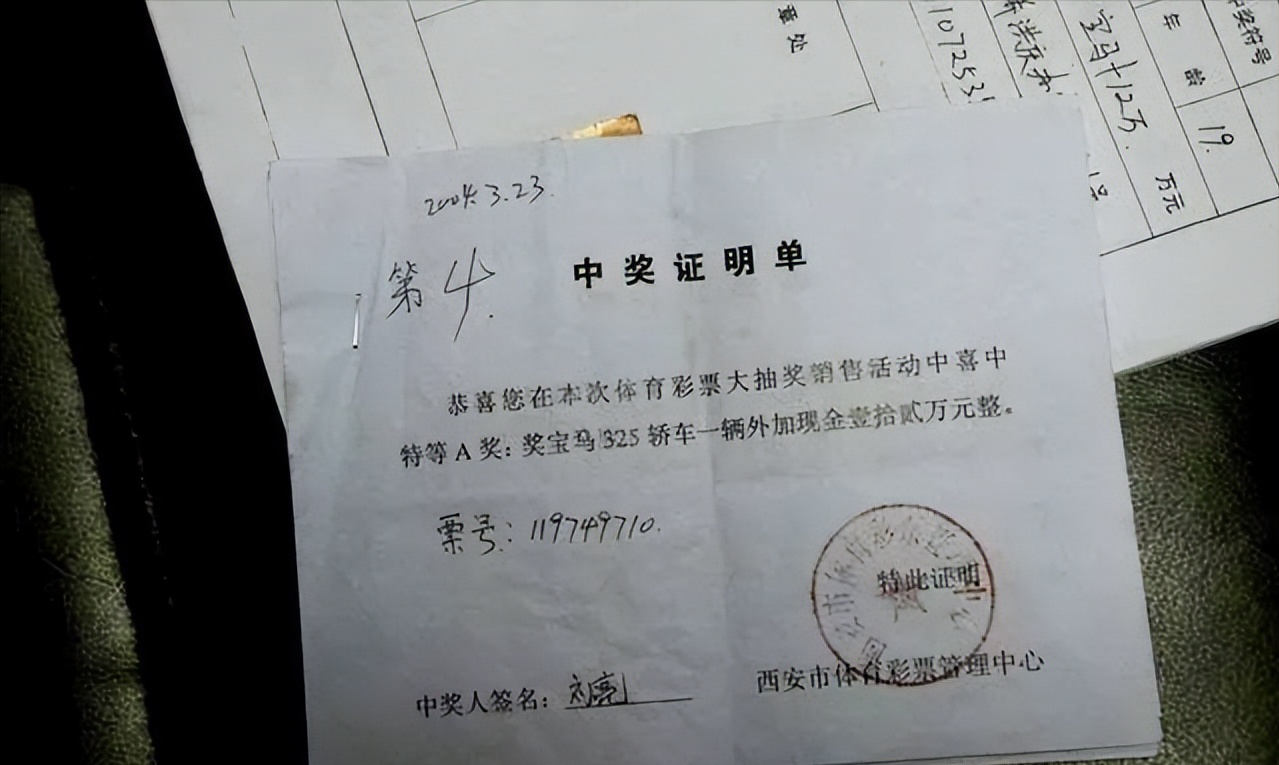 2004.3.23.
第4.
中奖证明单
恭喜您在本次体育彩票大抽奖销售活动中喜中
特等A奖：奖宝马325轿车一辆外加现金壹拾贰万元整。
票号：119749710.
特此证明
西安市体育彩票管理中心
中奖人签名：刘亮
西安市体育彩票管理中心
中奖符号
年龄
19.
宝马+12万.
万元
1072531